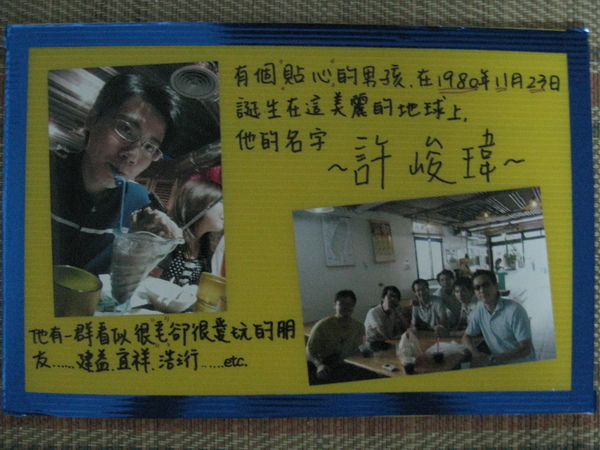 有個貼心的男孩,在1980年11月23日
誕生在這美麗的地球上,
他的名字
~許峻瑋~
他有一群看似很老卻很愛玩的朋
友......建益,宜祥,浩珩......etc.